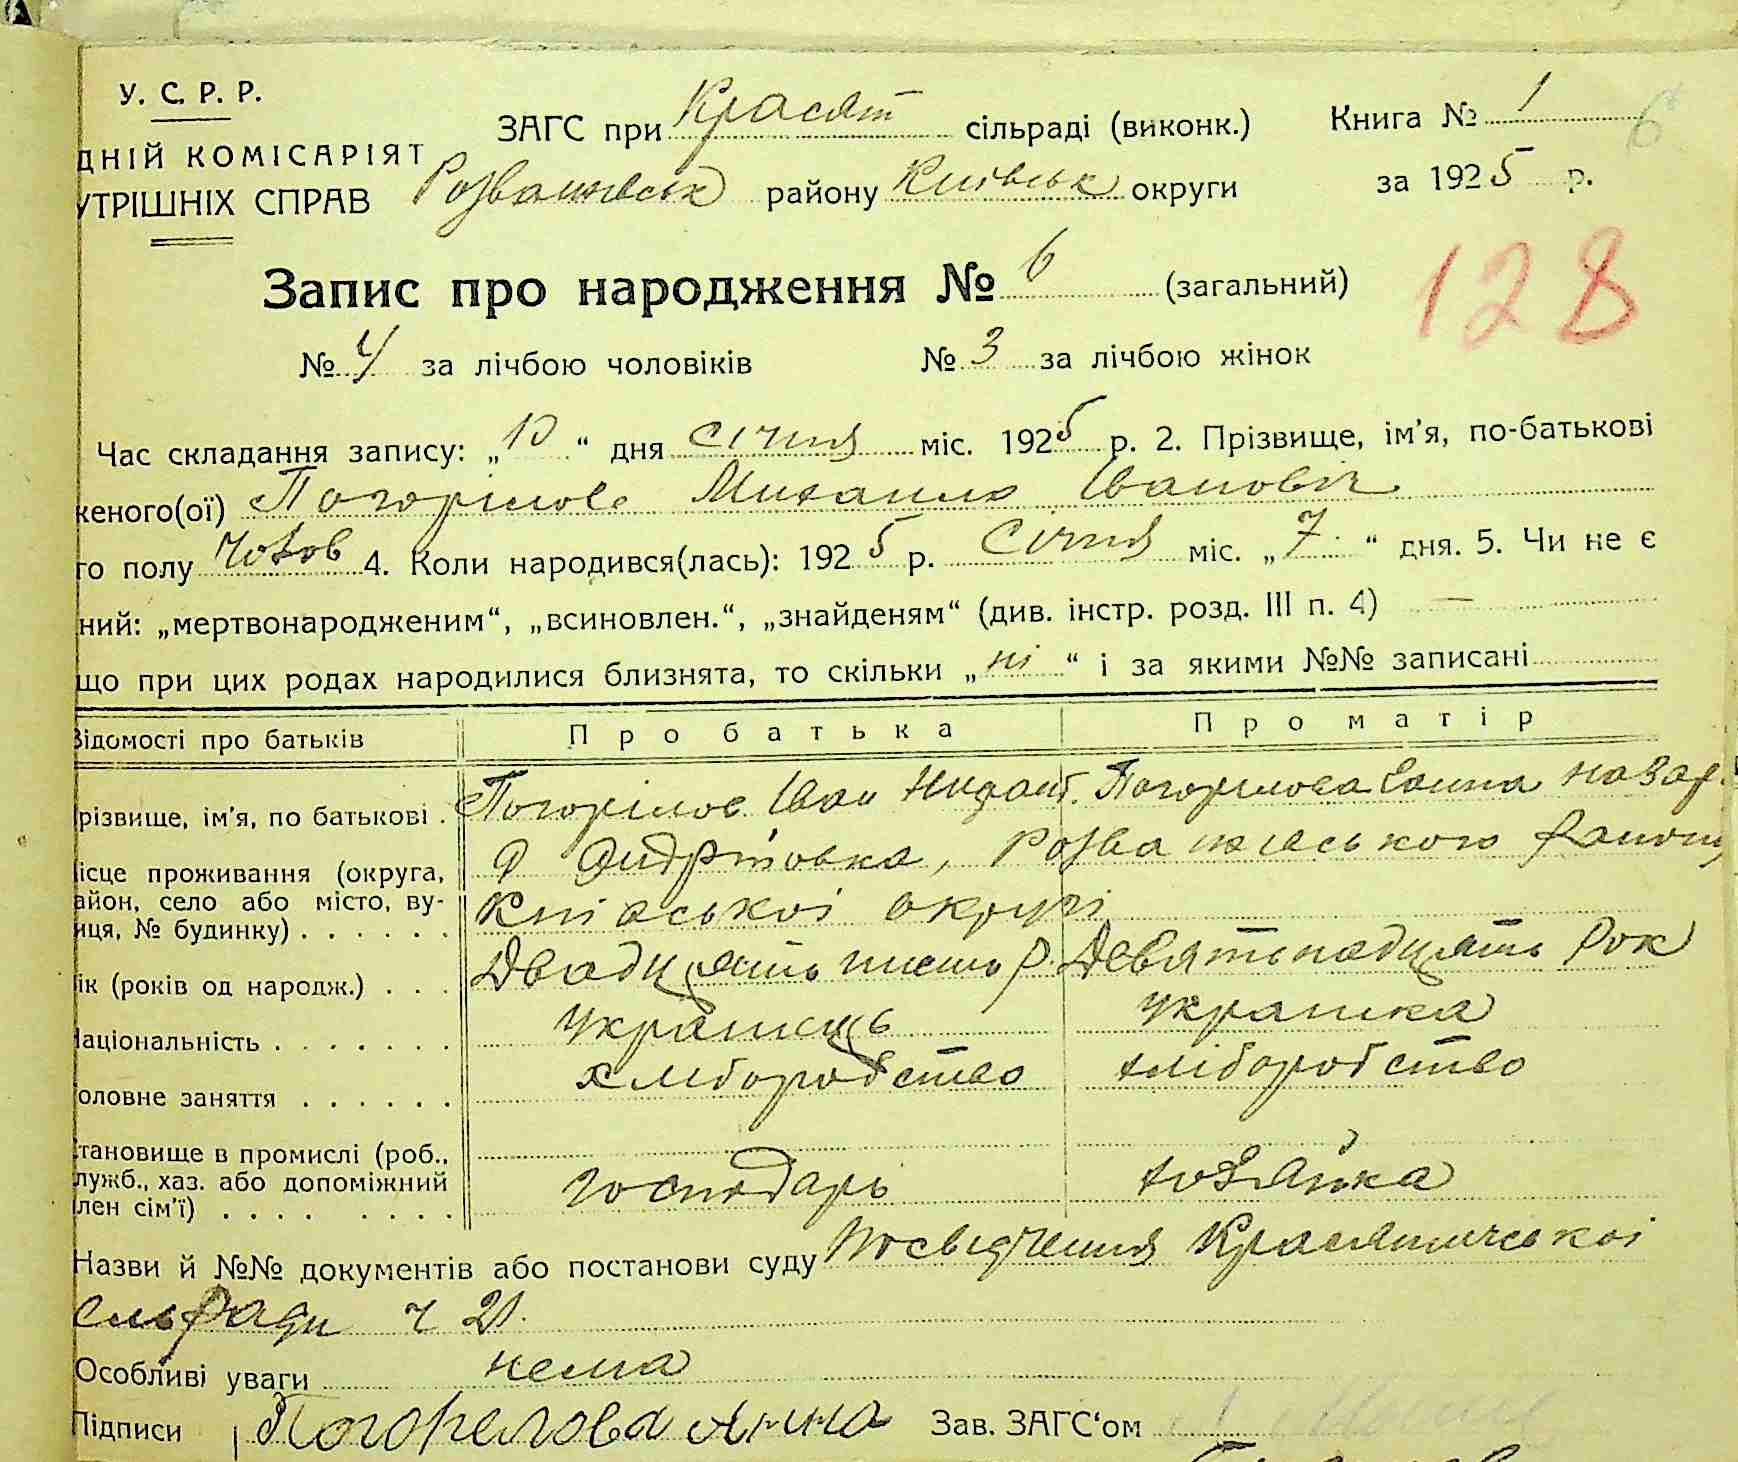 У. С. Р. Р.
ДНІЙ КОМІСАРІЯТ
УТРІШНІХ СПРАВ
ЗАГС при Красят сільраді (виконк.)
Розважівськ району Київськ округи
Книга № 1
6
за 1925 р.
Запис про народження № 6 (загальний)
128
№ 4 за лічбою чоловіків № 3 за лічбою жінок
Час складання запису: „10“ дня січня міс. 1925 р. 2. Прізвище, ім'я, по-батькові
женого(ої) Погорілов Михаило Івановіч
го полу чолов 4. Коли народився(лась): 1925 р. Січня міс. „7“ дня. 5. Чи не є
ний: „мертвонародженим“, „всиновлен.“, „знайденям“ (див. інстр. розд. III п. 4) —
що при цих родах народилися близнята, то скільки „ні“ і за якими №№ записані
Відомості про батьків Про батька Про матір
різвище, ім'я, по батькові . Погорілов Іван Погорілова Ганна Назар
ісце проживання (округа,
айон, село або місто, ву-
иця, № будинку) . . . . . .
Розважівського району
Київської округі
ік (років од народж.) . . . Двадцять шість р. Девятьнадцять рок
аціональність . . . . . . . Украінець украінка
оловне заняття . . . . . . хліборобство хліборобство
тановище в промислі (роб.,
лужб., хаз. або допоміжний
лен сім'ї) . . . . . . . . господарь хозяйка
Назви й №№ документів або постанови суду Посвідчення Красятичської
сельради ч 21.
Особливі уваги нема
Підписи Погорелова Анна Зав. ЗАГС'ом